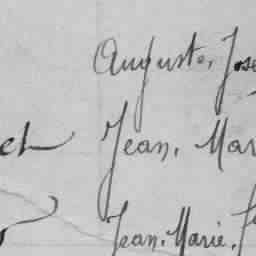 Auguste, José
et Jean, Mar
Jean, Marie, J